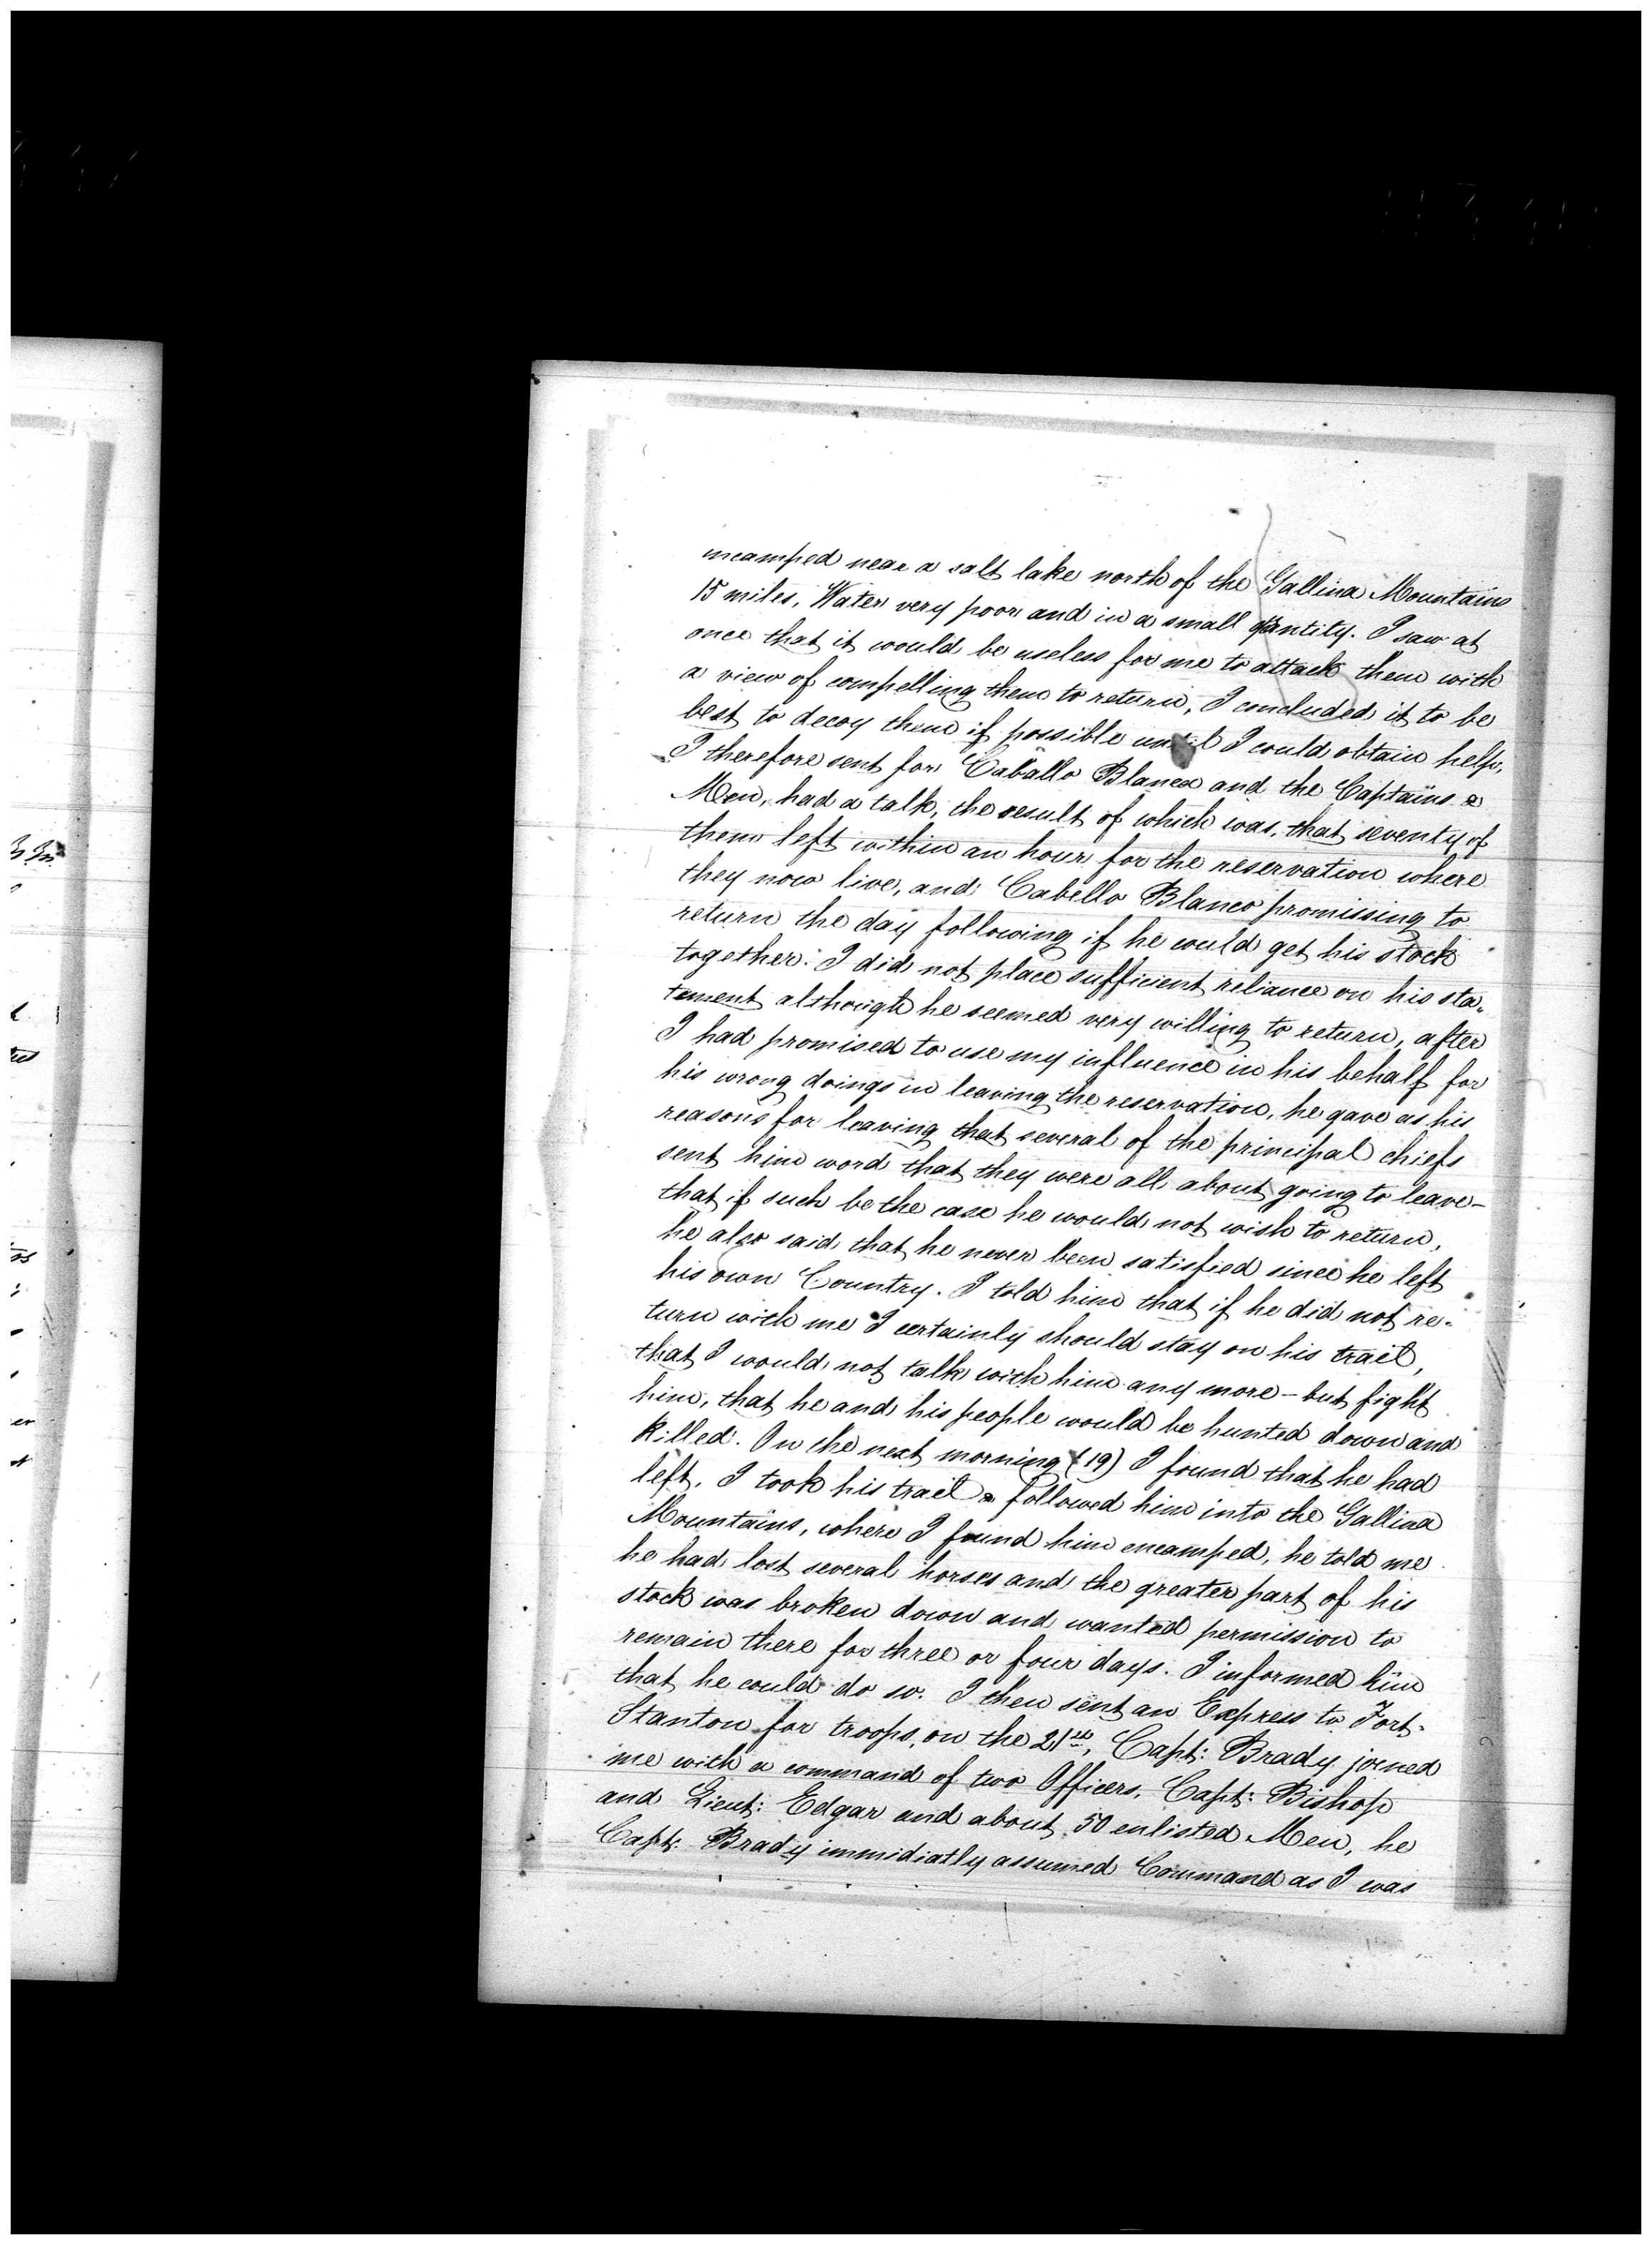 encamped near a salt lake north of the Gallina Mountains
15 miles, Water very poor and in a small qantity. I saw at
once that it would be useless for me to attack them with
a view of compelling them to return, I concluded it to be
best to decoy them if possible until I could obtain help,
I therefore sent for Caballo Blanco and the Captains &
Men, had a talk, the result of which was, that seventy of
them left within an hour for the reservation where
they now live, and Cabello Blanco promissing to
return the day following if he could get his stock
together. I did not place sufficient reliance on his sta-
tement although he seemed very willing to return, after
I had promised to use my influence in his behalf for
his wrong doings in leaving the reservation, he gave as his
reasons for leaving that several of the principal chiefs
sent him word that they were all about going to leave—
that if such be the case he would not wish to return,
he also said that he never been satisfied since he left
his own Country. I told him that if he did not re-
turn with me I certainly should stay on his trail,
that I would not talk with him any more — but fight
him, that he and his people would be hunted down and
killed. On the next morning (19) I found that he had
left, I took his trail & followed him into the Gallina
Mountains, where I found him encamped, he told me
he had lost several horses and the greater part of his
stock was broken down and wanted permission to
remain there for three or four days. I informed him
that he could do so. I then sent an Express to Fort-
Stanton for troops, on the 21st, Capt: Brady joined
me with a command of two Officers, Capt: Bishop
and Lieut: Edgar and about 50 enlisted Men, he
Capt: Brady immidiatly assumed Command as I was